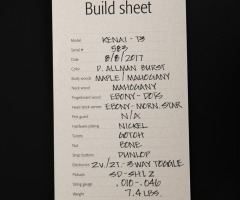 Build sheet
Model KENAI - T3
Serial # 583
Date 8/8/2017
Color D. ALLMAN BURST
Body woods MAPLE / MAHOGANY
Neck wood MAHOGANY
Fingerboard wood EBONY - DOTS
Head stock veneer EBONY - MORN. STAR
Pick guard N/A
Hardware plating NICKEL
Tuners GOTOH
Nut BONE
Strap buttons DUNLOP
Electronics 2V/2T. - 3-WAY TOGGLE
Pickups SD-SH1
String gauge .010 - .046
Weight 7.4 LBS.